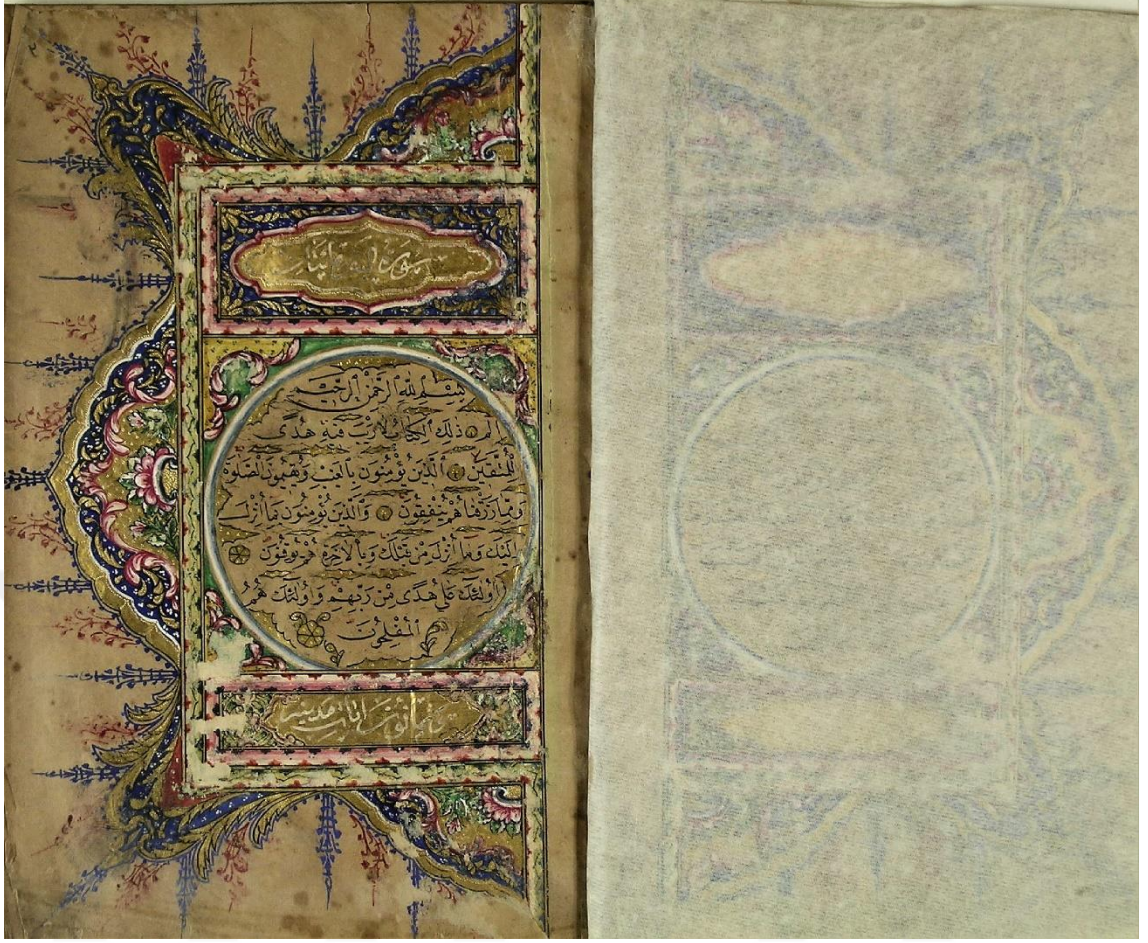 بسم الله الرحمن الرحيم
الم ذلك الكتاب لا ريب فيه هدى
للمتقين الذين يؤمنون بالغيب ويقيمون الصلوة
ومما رزقناهم ينفقون والذين يؤمنون بما أنزل
إليك وما أنزل من قبلك وبالآخرة هم يوقنون
أولئك على هدى من ربهم وأولئك هم
المفلحون